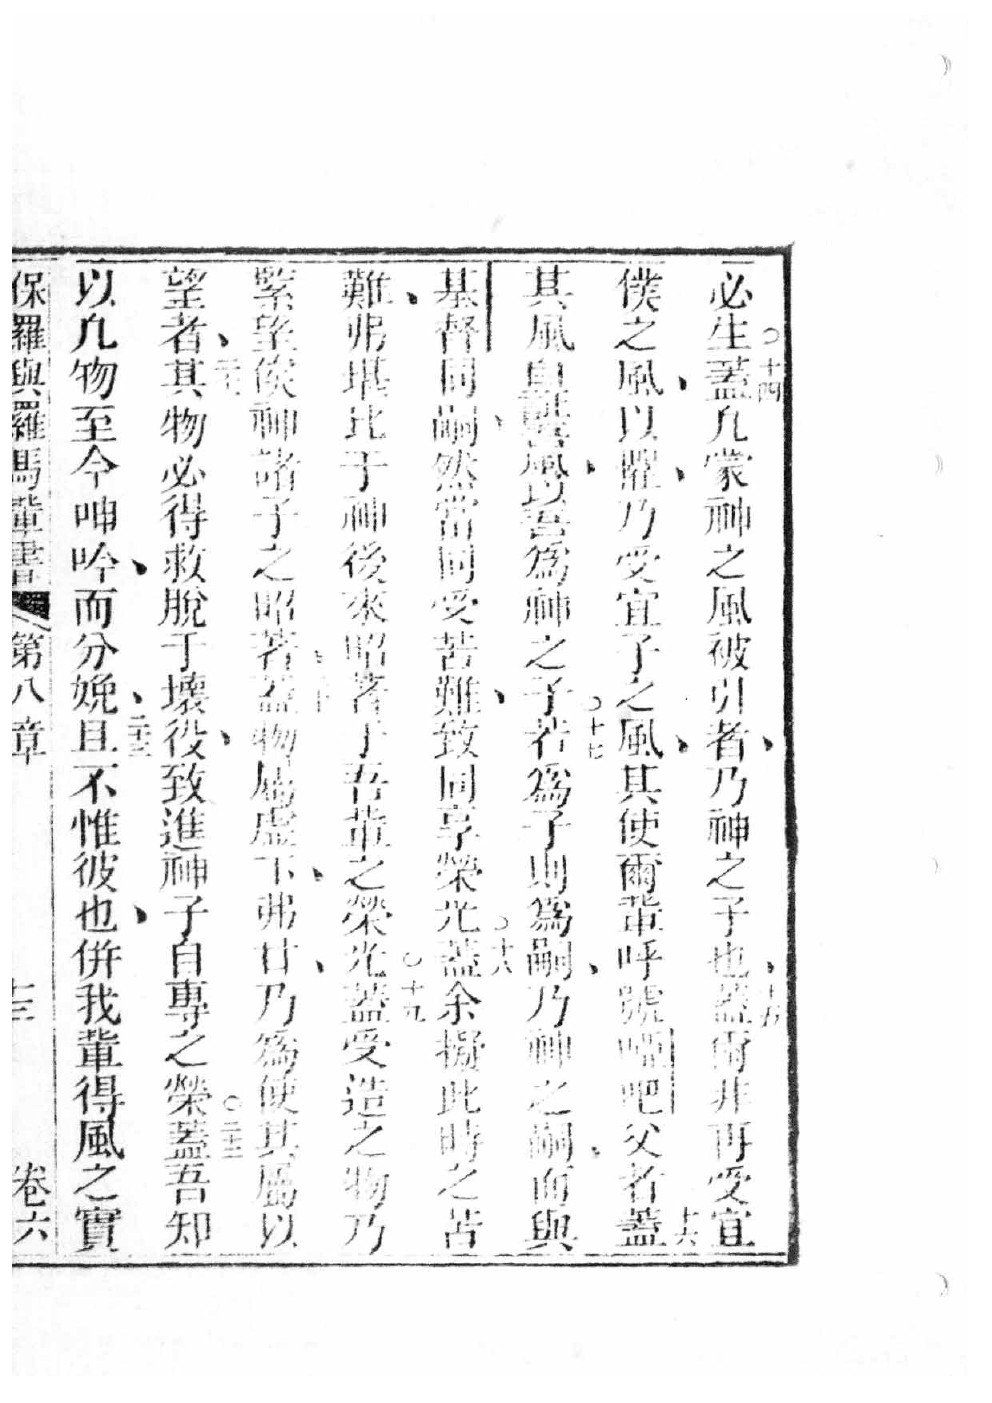 必生○十四蓋凢蒙神之風被引者乃神之子也十五蓋爾非再受宜
僕之風以懼乃受宜子之風其使爾輩呼號啞吧父者十六蓋
其風自証吾風以吾為神之子○十七若為子則為嗣乃神之嗣而與
基督同嗣然當同受苦難致同享榮光○十八蓋余擬此時之苦
難弗堪比于神後來昭著于吾輩之榮光○十九蓋受造之物乃
緊望俟神諸子之昭著二十蓋物屬虛下弗甘乃為使其屬以
望者二十一其物必得救脫于壞役致進神子自專之榮○二十二蓋吾知
以凢物至今呻吟而分娩二十三且不惟彼也併我輩得風之實
保羅與羅馬輩書 第八章 十三 卷六